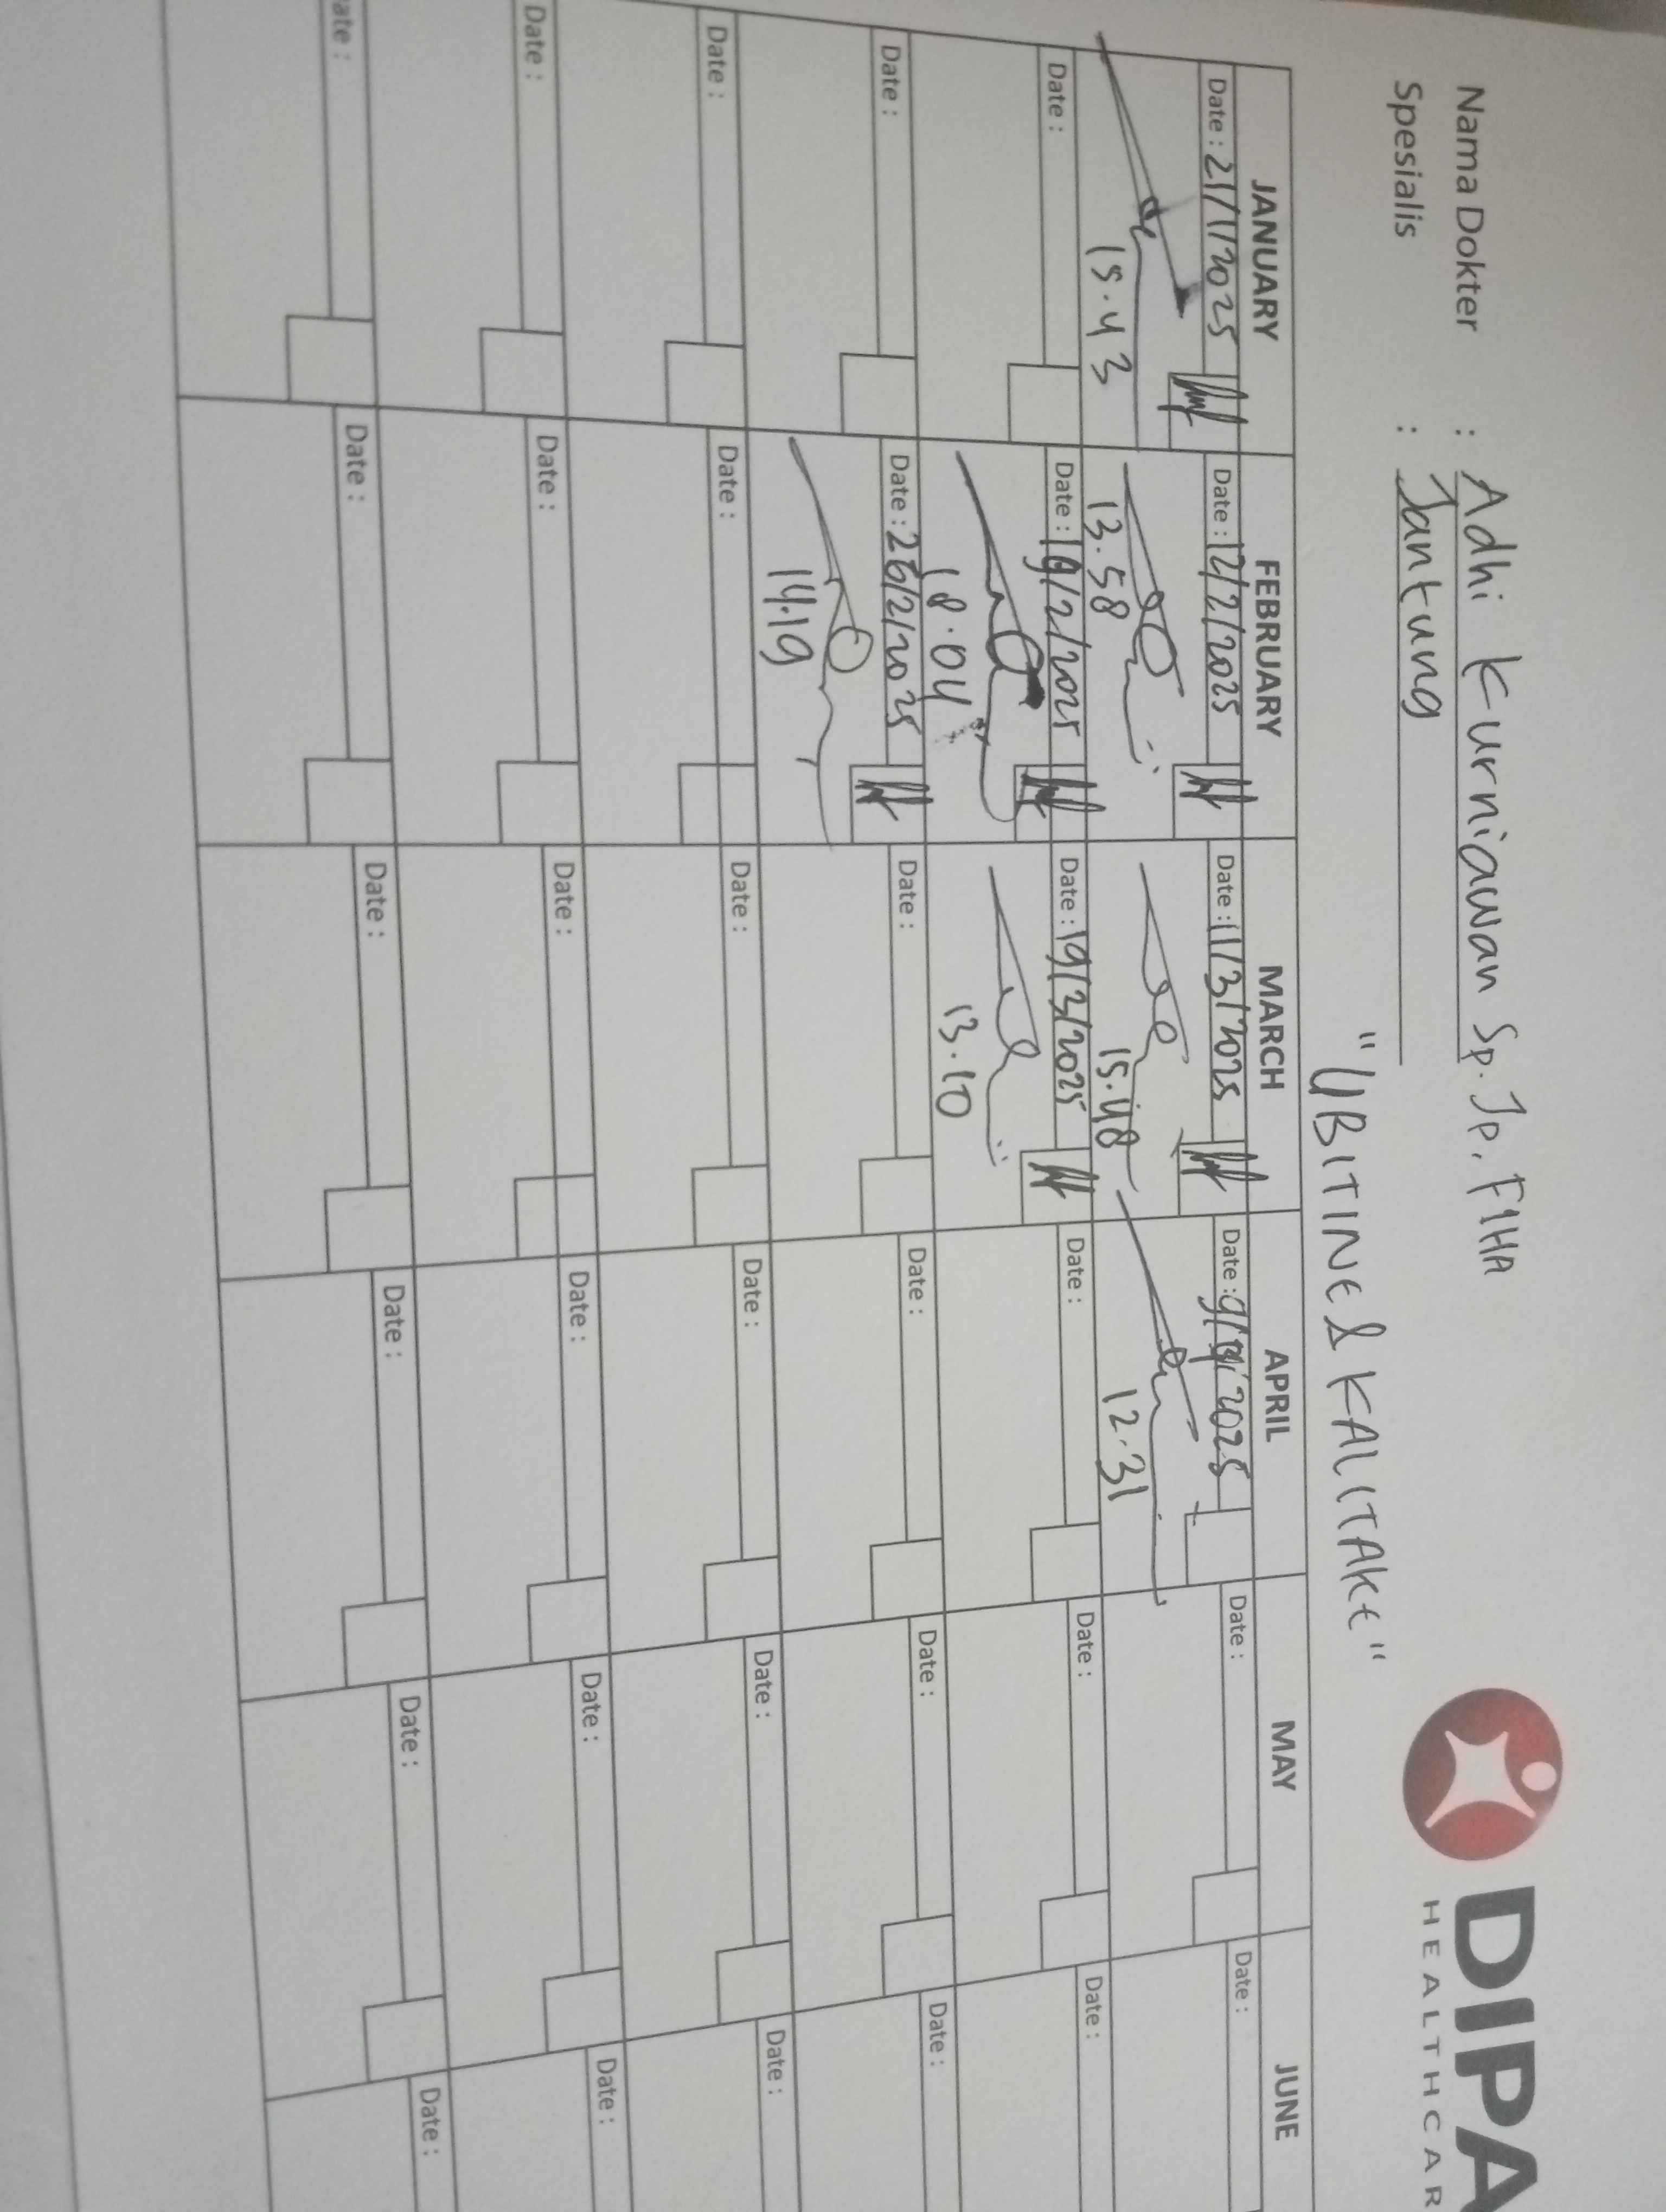 Nama Dokter : Adhi Kurniawan Sp. Jp. FIHA
Spesialis : Jantung
DIPA
HEALTHCAR
"UBITINE & KALITAKE"
JANUARY FEBRUARY MARCH APRIL MAY JUNE
Date : 21/1/2025 Date : 12/2/2025 Date : 11/3/2025 Date : 9/4/2025 Date : Date :
15.43 13.58 15.48 12.31
Date : Date : 19/2/2025 Date : 19/3/2025 Date : Date : Date :
18.04 13.10
Date : Date : 26/2/2025 Date : Date : Date : Date :
14.19
Date : Date : Date : Date : Date : Date :
Date : Date : Date : Date : Date : Date :
Date : Date : Date : Date : Date : Date :